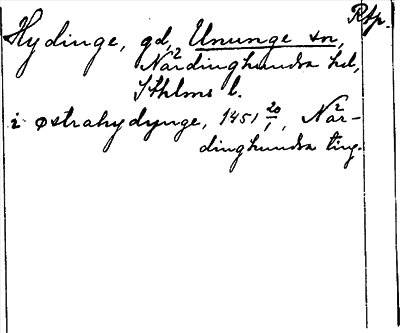 Rtp.
Hydinge, gd, Ununge sn,
Närdinghundra hd,
Sthlms l.
i østrahydynge, 1451 20/1, När-
dinghundra ting.